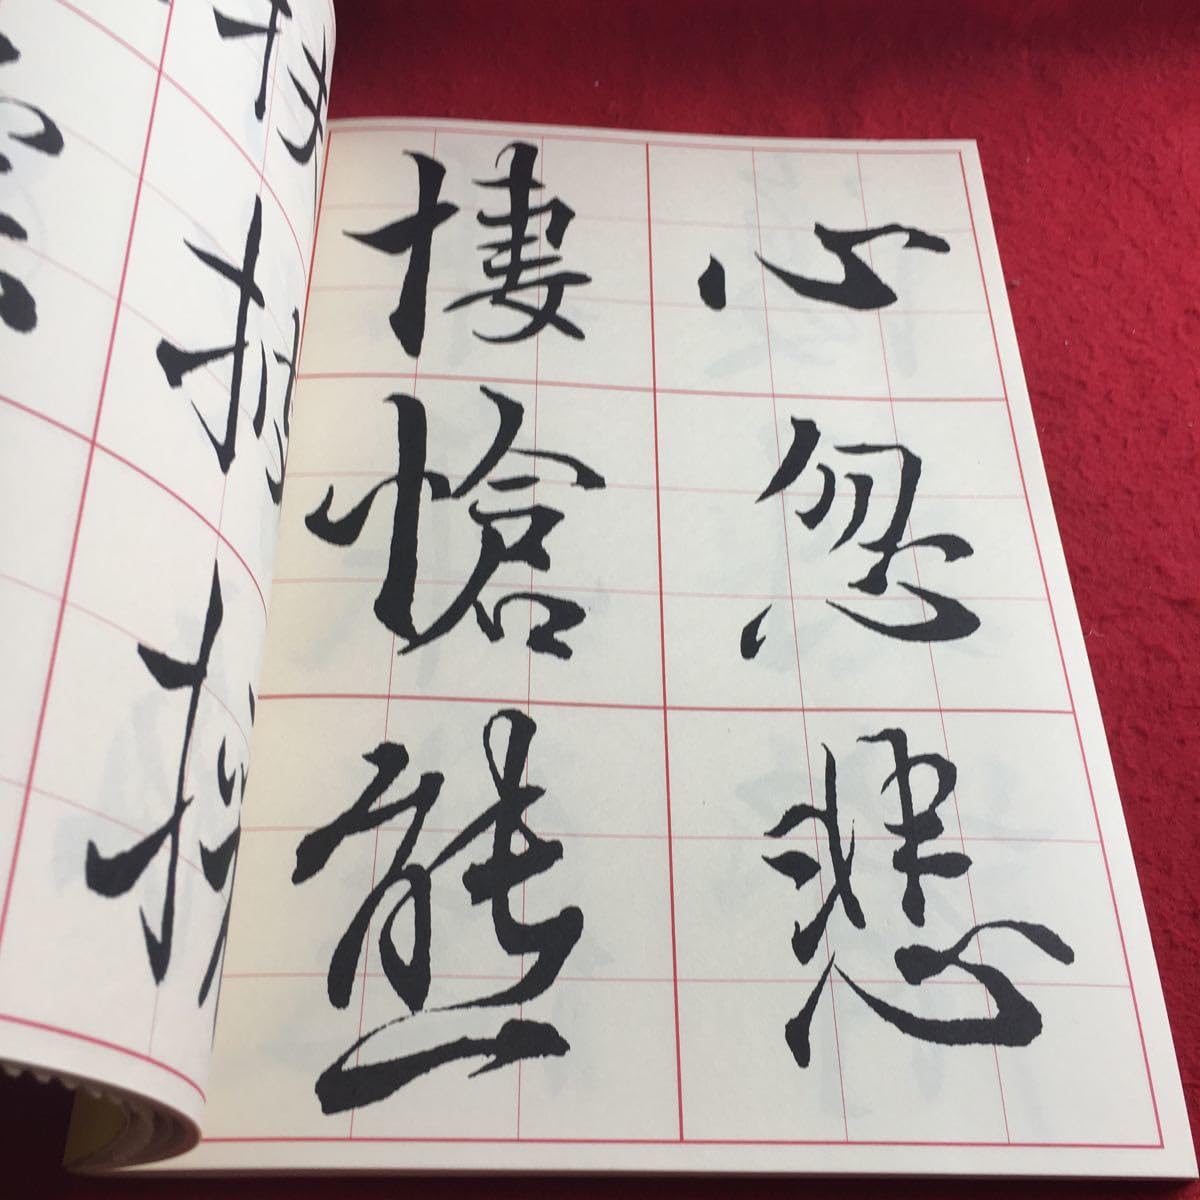 心忽悲
悽愴態